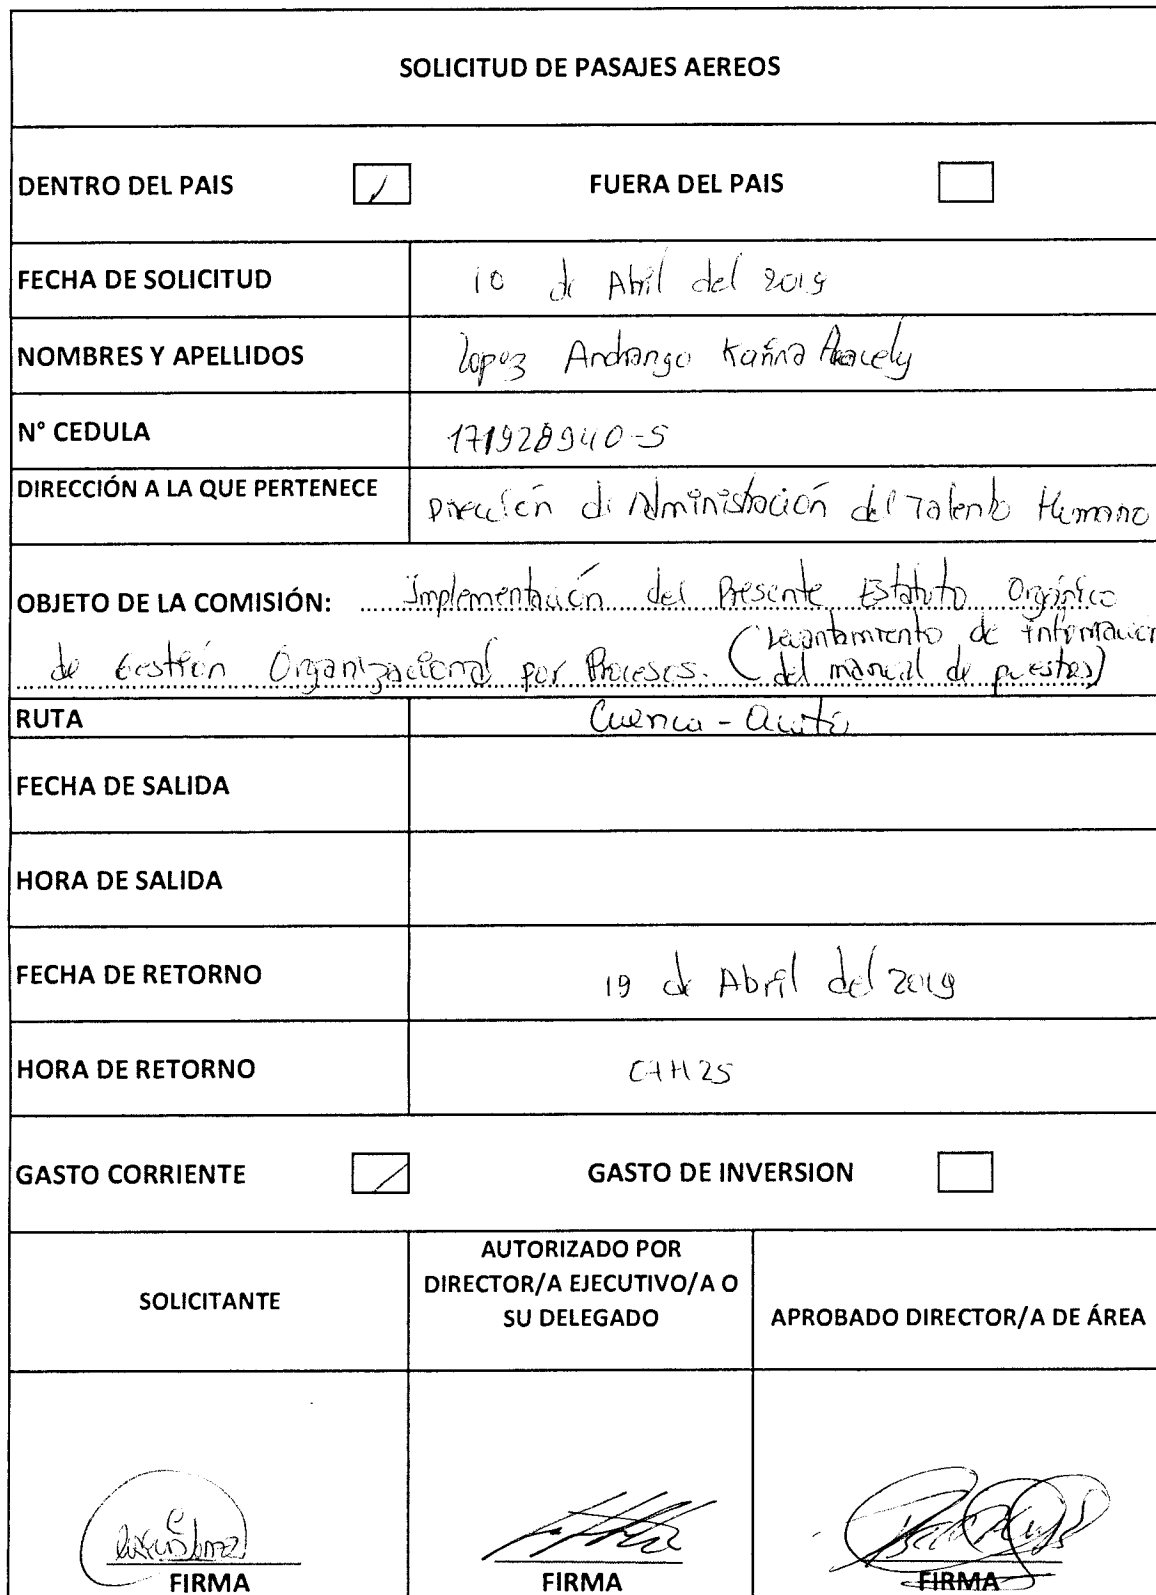 SOLICITUD DE PASAJES AEREOS
DENTRO DEL PAIS FUERA DEL PAIS
FECHA DE SOLICITUD 10 de Abril del 2019
NOMBRES Y APELLIDOS Lopez Andrango Karina Aracely
N° CEDULA 171928940-5
DIRECCIÓN A LA QUE PERTENECE Dirección de Administración del Talento Humano
OBJETO DE LA COMISIÓN: Implementación del Presente Estatuto Orgánico
de Gestión Organizacional por Procesos. (Levantamiento de información
del manual de puestos)
RUTA Cuenca - Quito
FECHA DE SALIDA
HORA DE SALIDA
FECHA DE RETORNO 19 de Abril del 2019
HORA DE RETORNO 07H25
GASTO CORRIENTE GASTO DE INVERSION
SOLICITANTE
AUTORIZADO POR
DIRECTOR/A EJECUTIVO/A O
SU DELEGADO
APROBADO DIRECTOR/A DE ÁREA
FIRMA FIRMA FIRMA